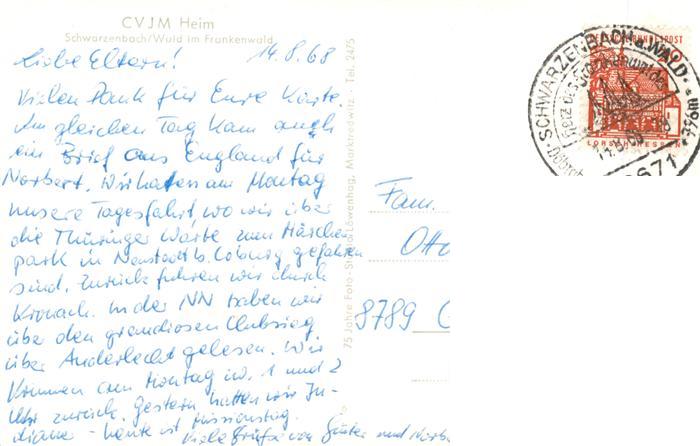 CVJM Heim
Schwarzenbach/Wald im Frankenwald
14.8.68
Liebe Eltern!
Vielen Dank für Eure Karte.
Am gleichen Tag kam auch
ein Brief aus England für
Norbert. Wir hatten am Montag
unsere Tagesfahrt, wo wir über
die Thüringer Warte zum Märchen-
park in Neustadt b. Coburg gefahren
sind. Zurück fuhren wir durch
Kronach. In der NN haben wir
über den grandiosen Clubsieg
über Anderlecht gelesen. Wir
kommen am Montag zw. 1 und 2
Uhr zurück. Gestern hatten wir In-
diane - heute ist Missionstag.
Viele Grüße von Günter und Norb
75 Jahre Foto- Löwenhag, Marktredwitz - Tel. 2475
Fam.
Otto
8789
DEUTSCHE BUNDESPOST
LORSCH/HESSEN
SCHWARZENBACH a. WALD
Herz des Frankenwaldes
14.8.68
8671